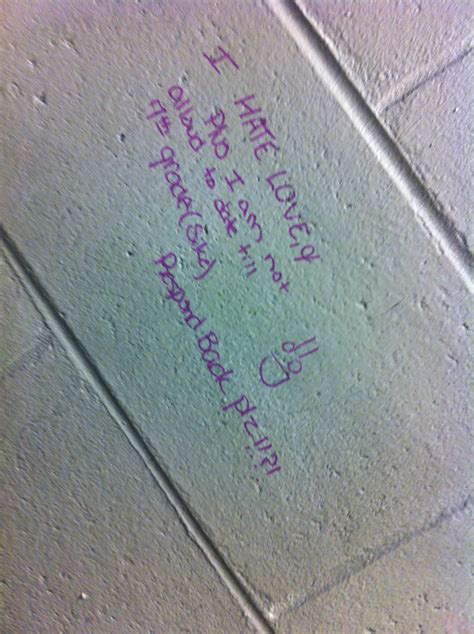 I HATE LOVE,
I am not
allowd to date till
7th grade (Sike)
Respond Back plz!!?!